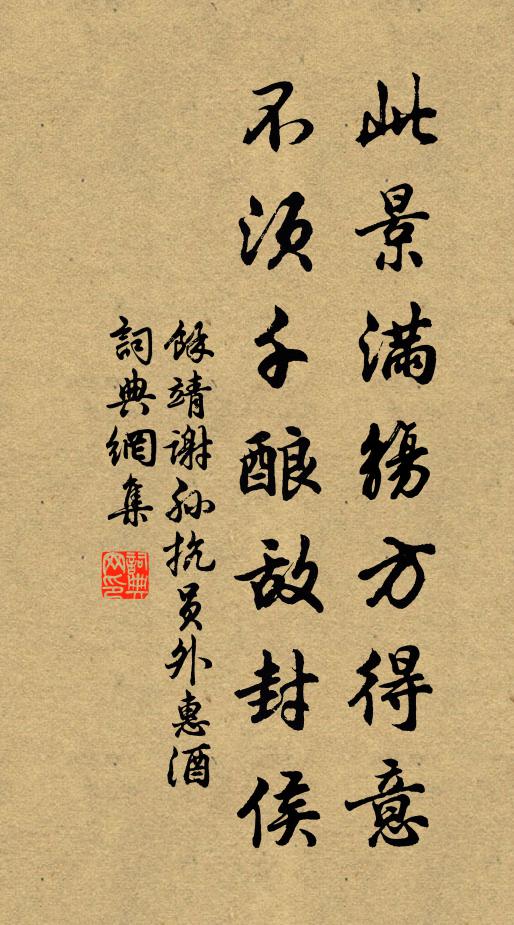 此景满觞方得意
不须千酿敌封侯
餘靖谢孙抗员外惠酒
詞典網集
詞典網印